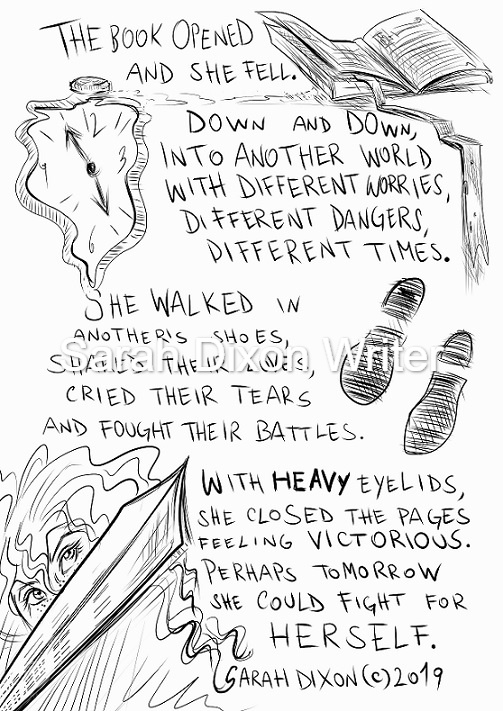 THE BOOK OPENED
AND SHE FELL.
DOWN AND DOWN,
INTO ANOTHER WORLD
WITH DIFFERENT WORRIES,
DIFFERENT DANGERS,
DIFFERENT TIMES.
SHE WALKED IN
ANOTHER'S SHOES,
Sarah Dixon Writer
SHARED THEIR LOVES,
CRIED THEIR TEARS
AND FOUGHT THEIR BATTLES.
WITH HEAVY EYELIDS,
SHE CLOSED THE PAGES
FEELING VICTORIOUS.
PERHAPS TOMORROW
SHE COULD FIGHT FOR
HERSELF.
SARAH DIXON (c) 2019